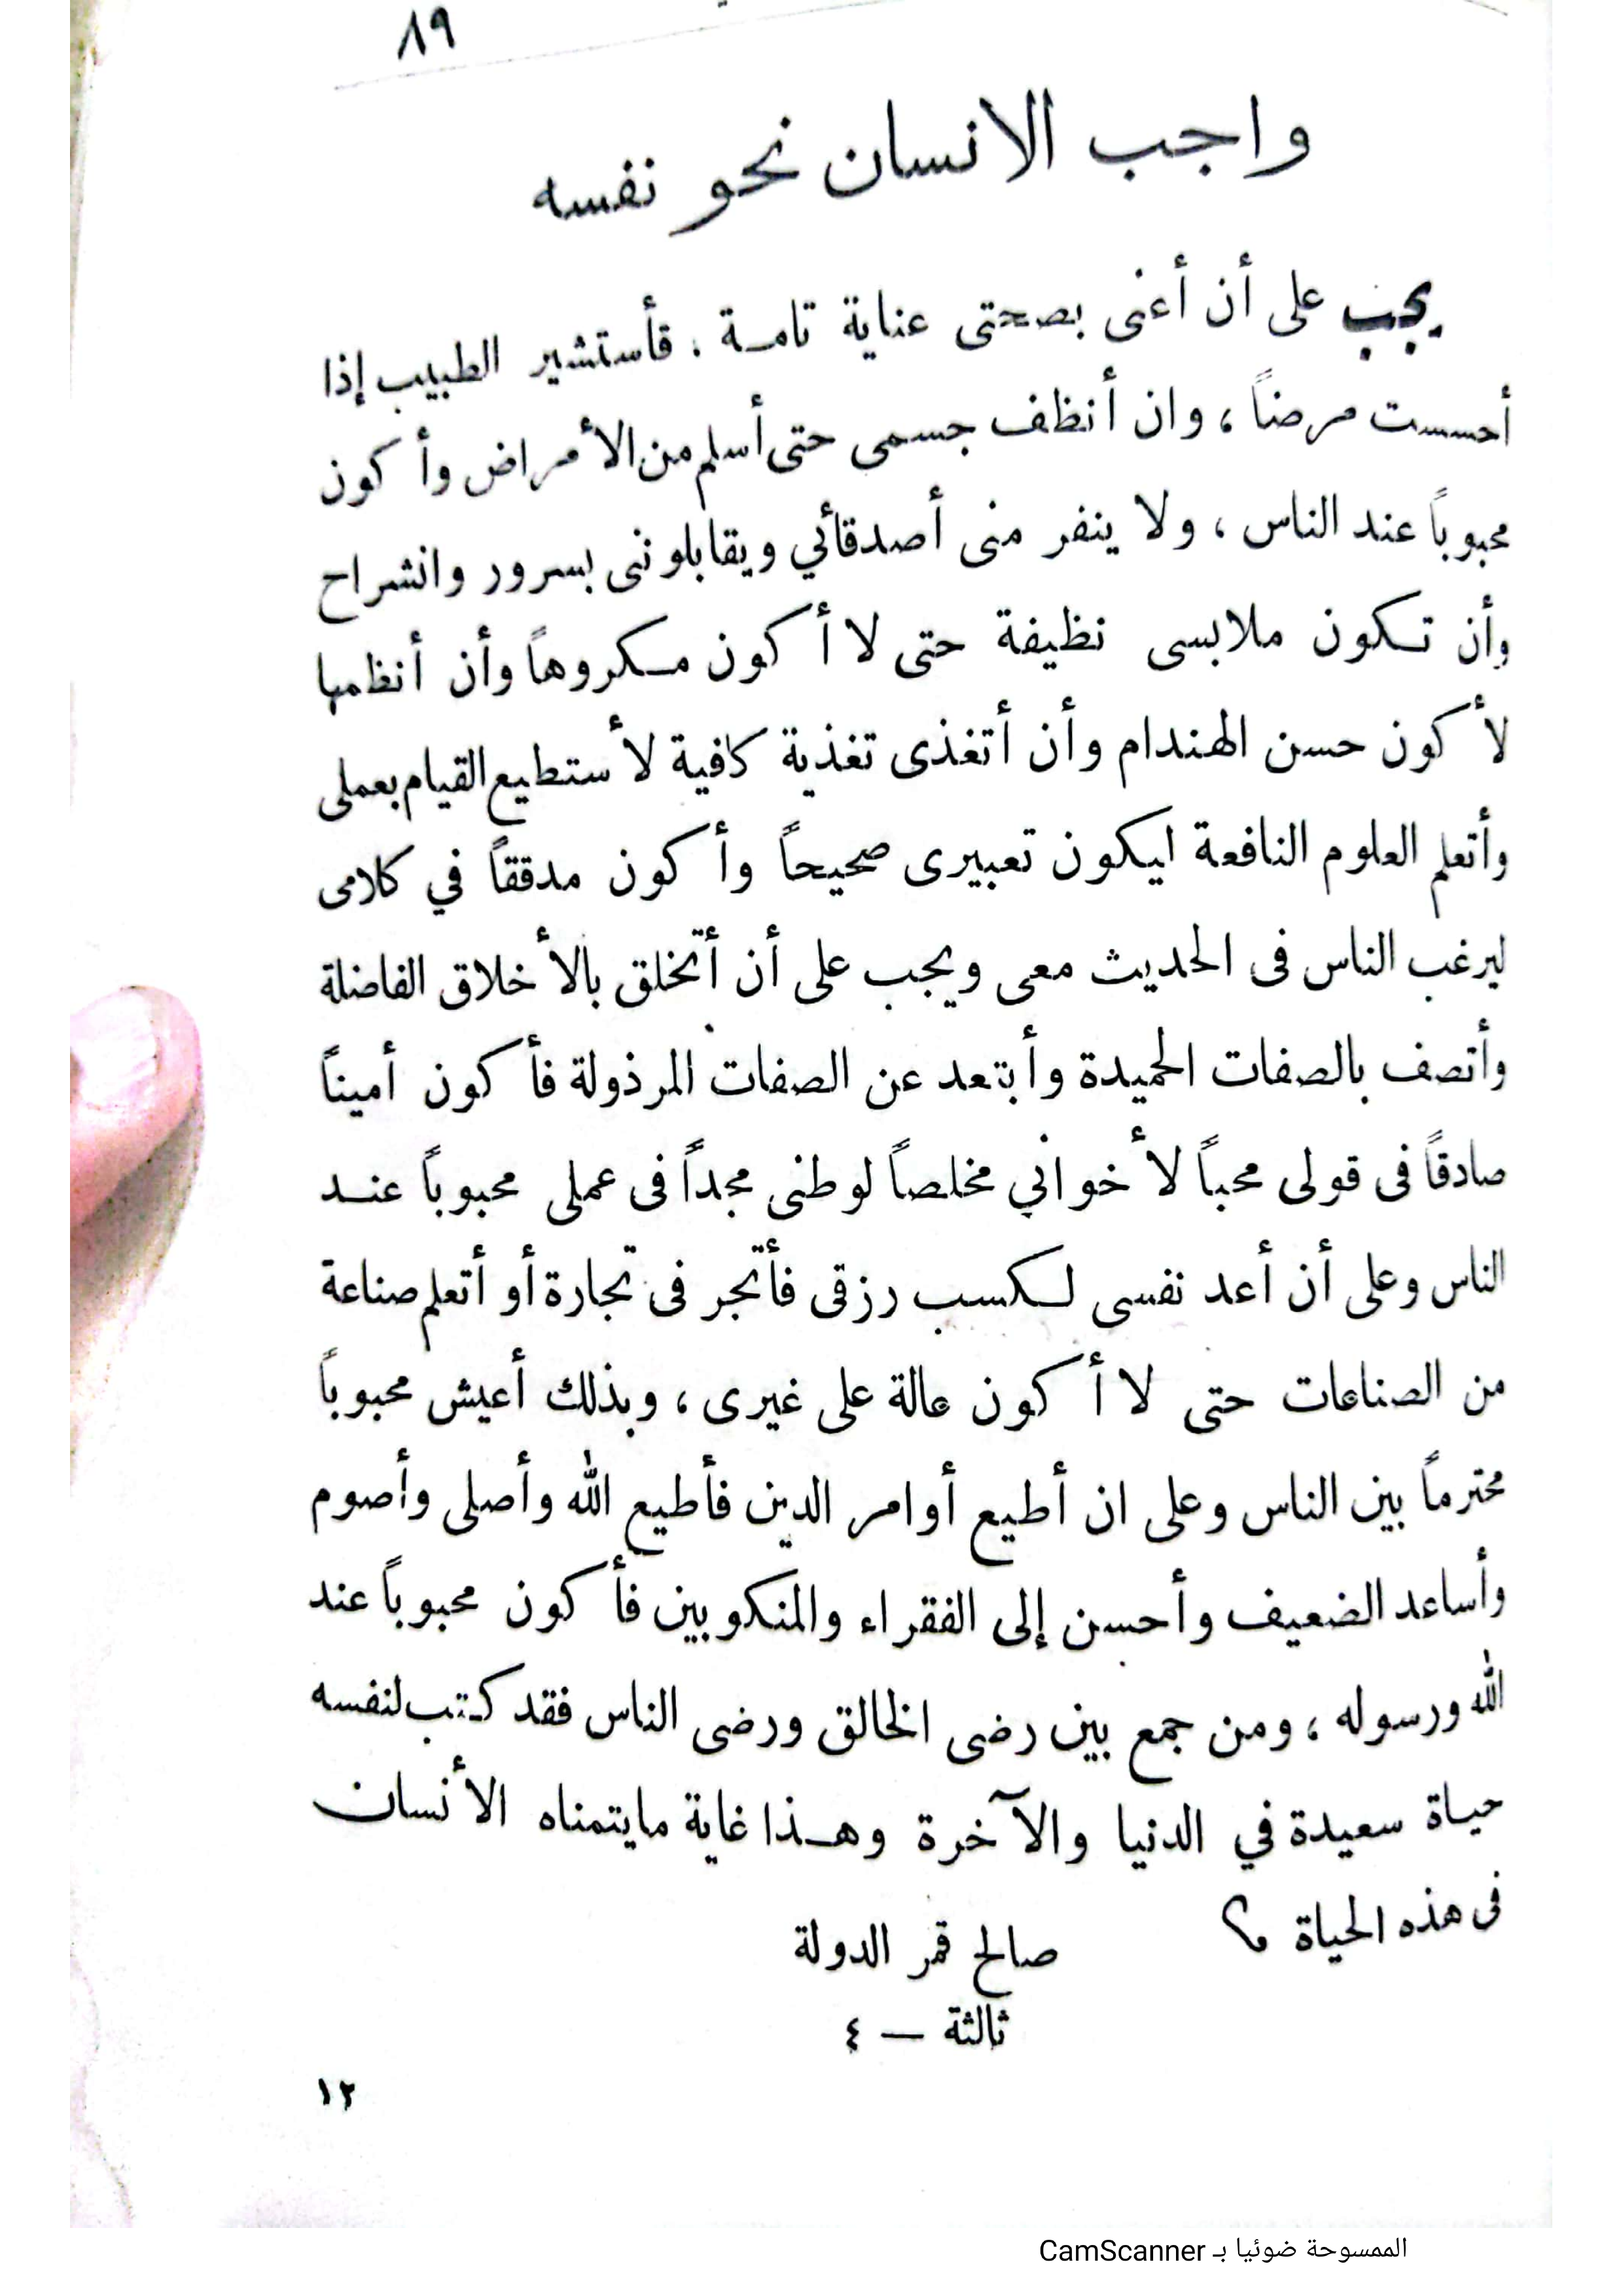 ٨٩
واجب الانسان نحو نفسه
يجب على أن أعنى بصحتى عناية تامة . فأستشير الطبيب إذا
أحسست مرضاً ، وان أنظف جسمى حتى أسلم من الأمراض وأكون
محبوباً عند الناس ، ولا ينفر منى أصدقائي ويقابلوننى بسرور وانشراح
وأن تكون ملابسى نظيفة حتى لا أكون مكروهاً وأن أنظمها
لأكون حسن الهندام وأن أتغذى تغذية كافية لأستطيع القيام بعملى
وأتعلم العلوم النافعة ايكون تعبيرى صحيحاً وأكون مدققاً في كلامى
ليرغب الناس فى الحديث معى ويجب على أن أتخلق بالأخلاق الفاضلة
وأتصف بالصفات الحميدة وأبتعد عن الصفات المرذولة فأكون أميناً
صادقاً فى قولى محباً لأخواني مخلصاً لوطنى مجداً فى عملى محبوباً عند
الناس وعلى أن أعد نفسى لكسب رزقى فأتجر فى تجارة أو أتعلم صناعة
من الصناعات حتى لا أكون عالة على غيرى ، وبذلك أعيش محبوباً
محترماً بين الناس وعلى ان أطيع أوامر الدين فأطيع الله وأصلى وأصوم
وأساعد الضعيف وأحسن إلى الفقراء والمنكوبين فأكون محبوباً عند
الله ورسوله ، ومن جمع بين رضى الخالق ورضى الناس فقد كتب لنفسه
حياة سعيدة في الدنيا والآخرة وهذا غاية مايتمناه الأنسان
فى هذه الحياة ؟
صالح قمر الدولة
ثالثة — ٤
١٢
الممسوحة ضوئيا بـ CamScanner